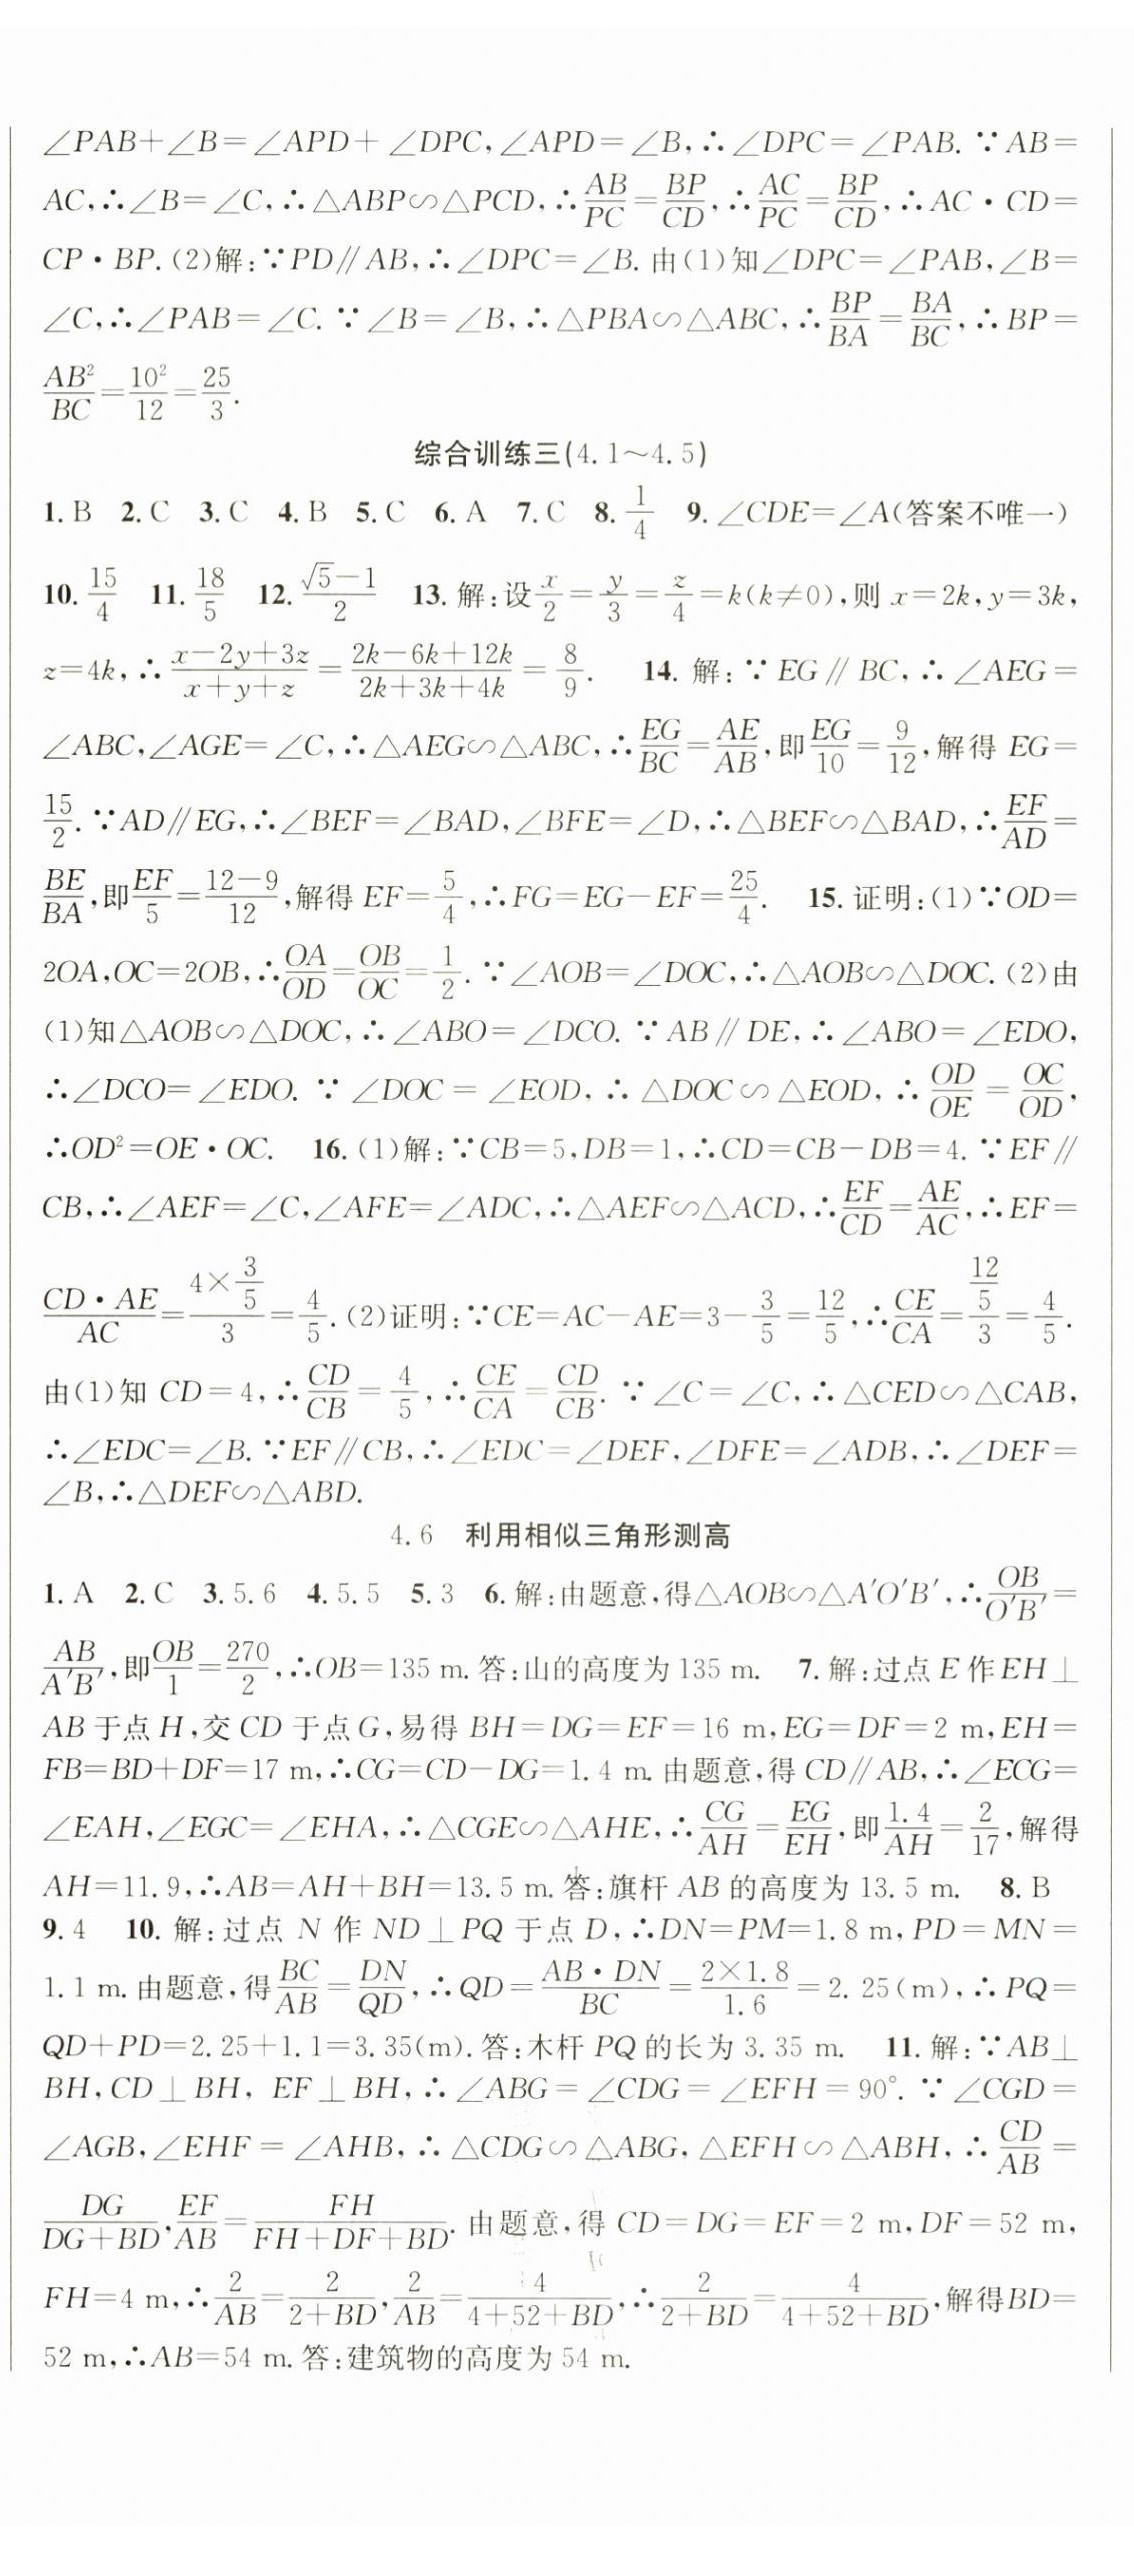 ∠PAB+∠B=∠APD+∠DPC,∠APD=∠B,∴∠DPC=∠PAB.∵AB=
AC,∴∠B=∠C,∴△ABP∽△PCD,∴AB/PC=BP/CD,∴AC/PC=BP/CD,∴AC·CD=
CP·BP.(2)解:∵PD∥AB,∴∠DPC=∠B.由(1)知∠DPC=∠PAB,∠B=
∠C,∴∠PAB=∠C.∵∠B=∠B,∴△PBA∽△ABC,∴BP/BA=BA/BC,∴BP=
AB²/BC=10²/12=25/3.
综合训练三(4.1～4.5)
1.B 2.C 3.C 4.B 5.C 6.A 7.C 8.1/4 9.∠CDE=∠A(答案不唯一)
10.15/4 11.18/5 12.(√5-1)/2 13.解:设x/2=y/3=z/4=k(k≠0),则x=2k,y=3k,
z=4k,∴(x-2y+3z)/(x+y+z)=(2k-6k+12k)/(2k+3k+4k)=8/9. 14.解:∵EG∥BC,∴∠AEG=
∠ABC,∠AGE=∠C,∴△AEG∽△ABC,∴EG/BC=AE/AB,即EG/10=9/12,解得EG=
15/2.∵AD∥EG,∴∠BEF=∠BAD,∠BFE=∠D,∴△BEF∽△BAD,∴EF/AD=
BE/BA,即EF/5=(12-9)/12,解得EF=5/4,∴FG=EG-EF=25/4. 15.证明:(1)∵OD=
2OA,OC=2OB,∴OA/OD=OB/OC=1/2.∵∠AOB=∠DOC,∴△AOB∽△DOC.(2)由
(1)知△AOB∽△DOC,∴∠ABO=∠DCO.∵AB∥DE,∴∠ABO=∠EDO,
∴∠DCO=∠EDO.∵∠DOC=∠EOD,∴△DOC∽△EOD,∴OD/OE=OC/OD,
∴OD²=OE·OC. 16.(1)解:∵CB=5,DB=1,∴CD=CB-DB=4.∵EF∥
CB,∴∠AEF=∠C,∠AFE=∠ADC,∴△AEF∽△ACD,∴EF/CD=AE/AC,∴EF=
CD·AE/AC=(4×3/5)/3=4/5.(2)证明:∵CE=AC-AE=3-3/5=12/5,∴CE/CA=(12/5)/3=4/5.
由(1)知CD=4,∴CD/CB=4/5,∴CE/CA=CD/CB.∵∠C=∠C,∴△CED∽△CAB,
∴∠EDC=∠B.∵EF∥CB,∴∠EDC=∠DEF,∠DFE=∠ADB,∴∠DEF=
∠B,∴△DEF∽△ABD.
4.6 利用相似三角形测高
1.A 2.C 3.5.6 4.5.5 5.3 6.解:由题意,得△AOB∽△A′O′B′,∴OB/O′B′=
AB/A′B′,即OB/1=270/2,∴OB=135 m.答:山的高度为135 m. 7.解:过点E作EH⊥
AB于点H,交CD于点G,易得BH=DG=EF=16 m,EG=DF=2 m,EH=
FB=BD+DF=17 m,∴CG=CD-DG=1.4 m.由题意,得CD∥AB,∴∠ECG=
∠EAH,∠EGC=∠EHA,∴△CGE∽△AHE,∴CG/AH=EG/EH,即1.4/AH=2/17,解得
AH=11.9,∴AB=AH+BH=13.5 m.答:旗杆AB的高度为13.5 m. 8.B
9.4 10.解:过点N作ND⊥PQ于点D,∴DN=PM=1.8 m,PD=MN=
1.1 m.由题意,得BC/AB=DN/QD,∴QD=AB·DN/BC=2×1.8/1.6=2.25(m),∴PQ=
QD+PD=2.25+1.1=3.35(m).答:木杆PQ的长为3.35 m. 11.解:∵AB⊥
BH,CD⊥BH,EF⊥BH,∴∠ABG=∠CDG=∠EFH=90°.∵∠CGD=
∠AGB,∠EHF=∠AHB,∴△CDG∽△ABG,△EFH∽△ABH,∴CD/AB=
DG/(DG+BD),EF/AB=FH/(FH+DF+BD).由题意,得CD=DG=EF=2 m,DF=52 m,
FH=4 m,∴2/AB=2/(2+BD),2/AB=4/(4+52+BD),∴2/(2+BD)=4/(4+52+BD),解得BD=
52 m,∴AB=54 m.答:建筑物的高度为54 m.